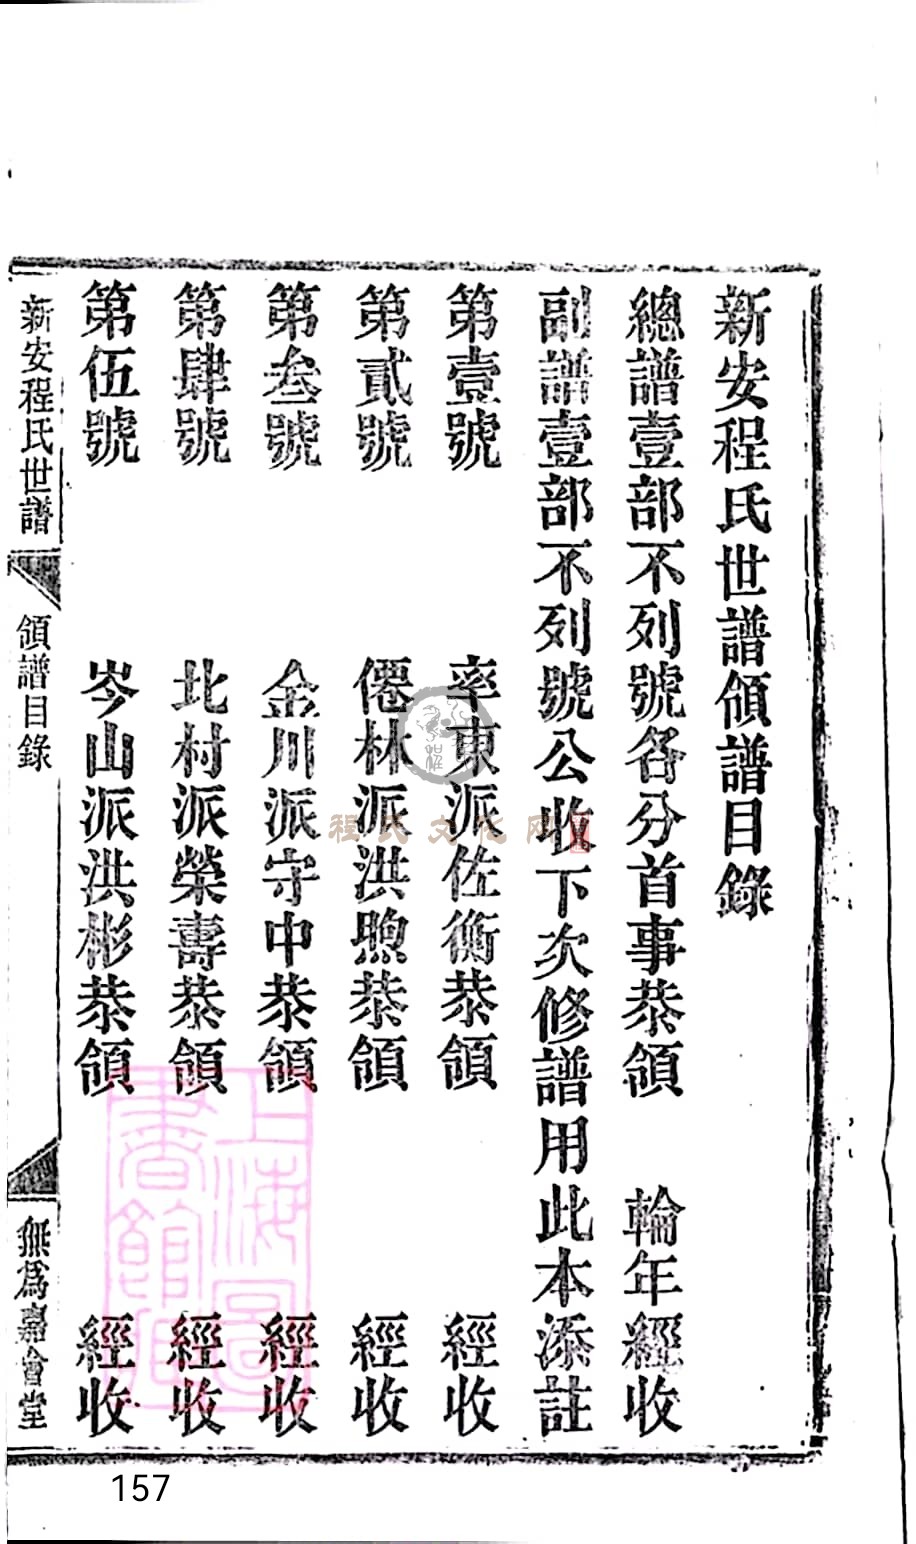 新安程氏世譜領譜目錄
總譜壹部不列號各分首事恭領 輪年經收
副譜壹部不列號公收下次修譜用此本添註
第壹號 率東派佐衡恭領 經收
第貳號 僊林派洪煦恭領 經收
第叁號 金川派守中恭領 經收
第肆號 北村派榮壽恭領 經收
第伍號 岑山派洪彬恭領 經收
新安程氏世譜 領譜目錄 無為嘉會堂
程氏文化网
上海圖書館藏
157